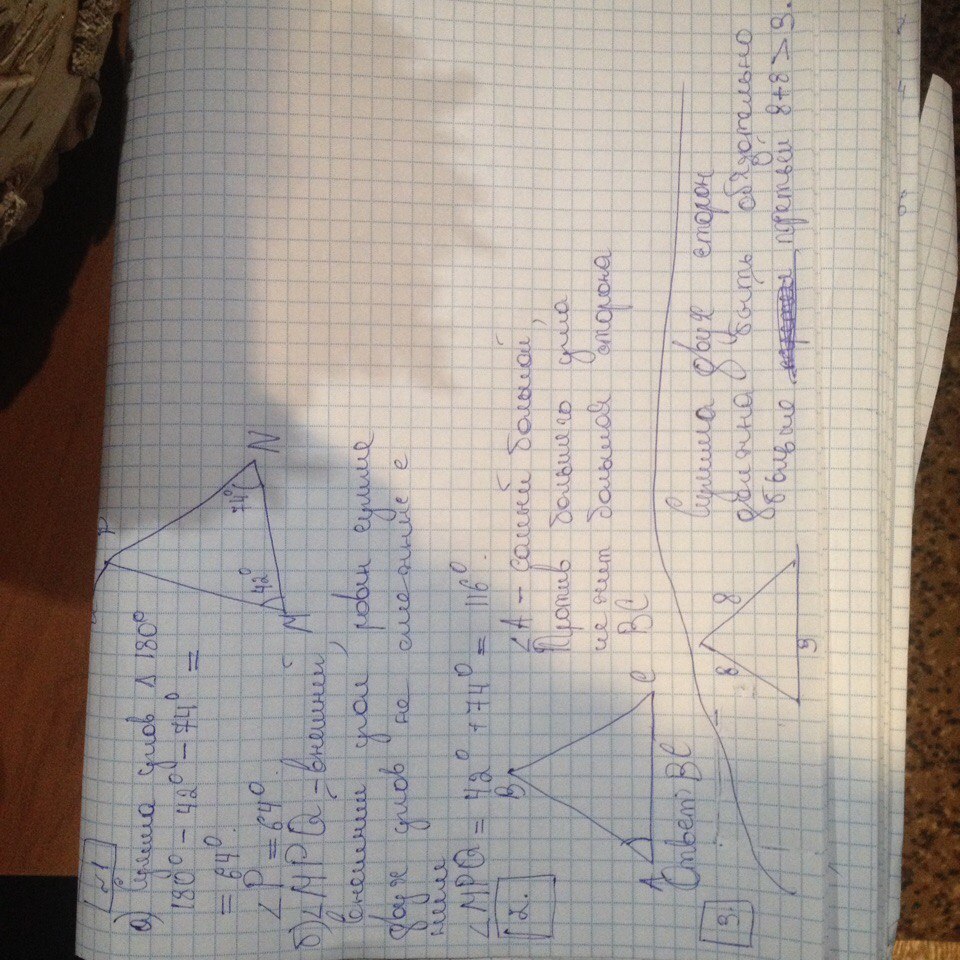 №1
а) Сумма углов Δ 180°
180° - 42° - 74° =
= 64°.
∠P = 64°
P
M
N
42°
74°
б) ∠MPQ - внешний,
внешний угол равен сумме
двух углов не смежные с
ним
∠MPQ = 42° + 74° = 116°.
2.
B
A
C
∠A - самый большой,
Против большего угла
лежит большая сторона
BC
Ответ: BC
3.
8
8
9
Сумма двух сторон
должна быть обязательно
больше третьей 8+8>9.